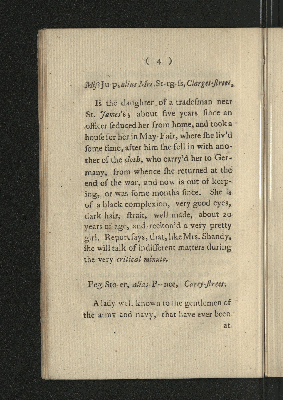 ( 4 )
Miss Ju-p, alias Mrs. St-rg-ss, Clarges-street.
Is the daughter of a tradesman near
St. James's; about five years since an
officer seduced her from home, and took a
house for her in May-Fair, where she liv'd
some time, after him she fell in with ano-
ther of the cloth, who carry'd her to Ger-
many, from whence she returned at the
end of the war, and now is out of keep-
ing, or was some months since. She is
of a black complexion, very good eyes,
dark hair, strait, well made, about 20
years of age, and reckon'd a very pretty
girl. Report says, that, like Mrs. Shandy,
she will talk of indifferent matters during
the very critical minute.
Peg Sto-er, alias P--not, Carey-street.
A lady well known to the gentlemen of
the army and navy, that have ever been
at